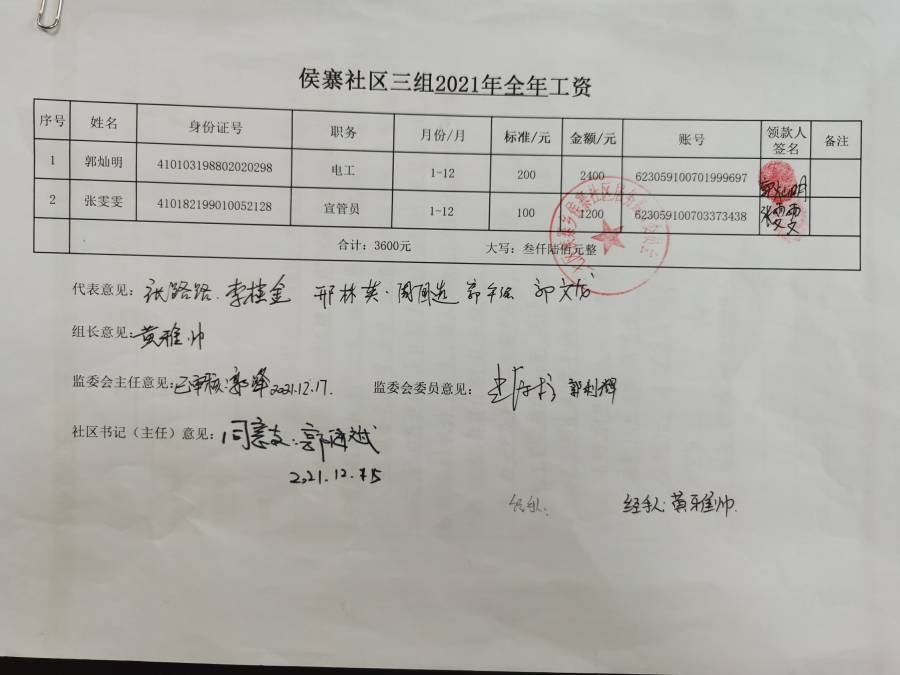 侯寨社区三组2021年全年工资
序号 姓名 身份证号 职务 月份/月 标准/元 金额/元 账号 领款人签名 备注
1 郭灿明 410103198802020298 电工 1-12 200 2400 623059100701999697 郭灿明
2 张雯雯 410182199010052128 宣管员 1-12 100 1200 623059100703373438 张雯雯
合计：3600元 大写：叁仟陆佰元整
代表意见：张路路.李桂金 邢林英.
组长意见：黄雅帅
监委会主任意见：已审核：郭峰2021.12.17. 监委会委员意见： 郭利辉
社区书记（主任）意见：同意支：
2021.12.15
经手人： 经手人：黄雅帅.